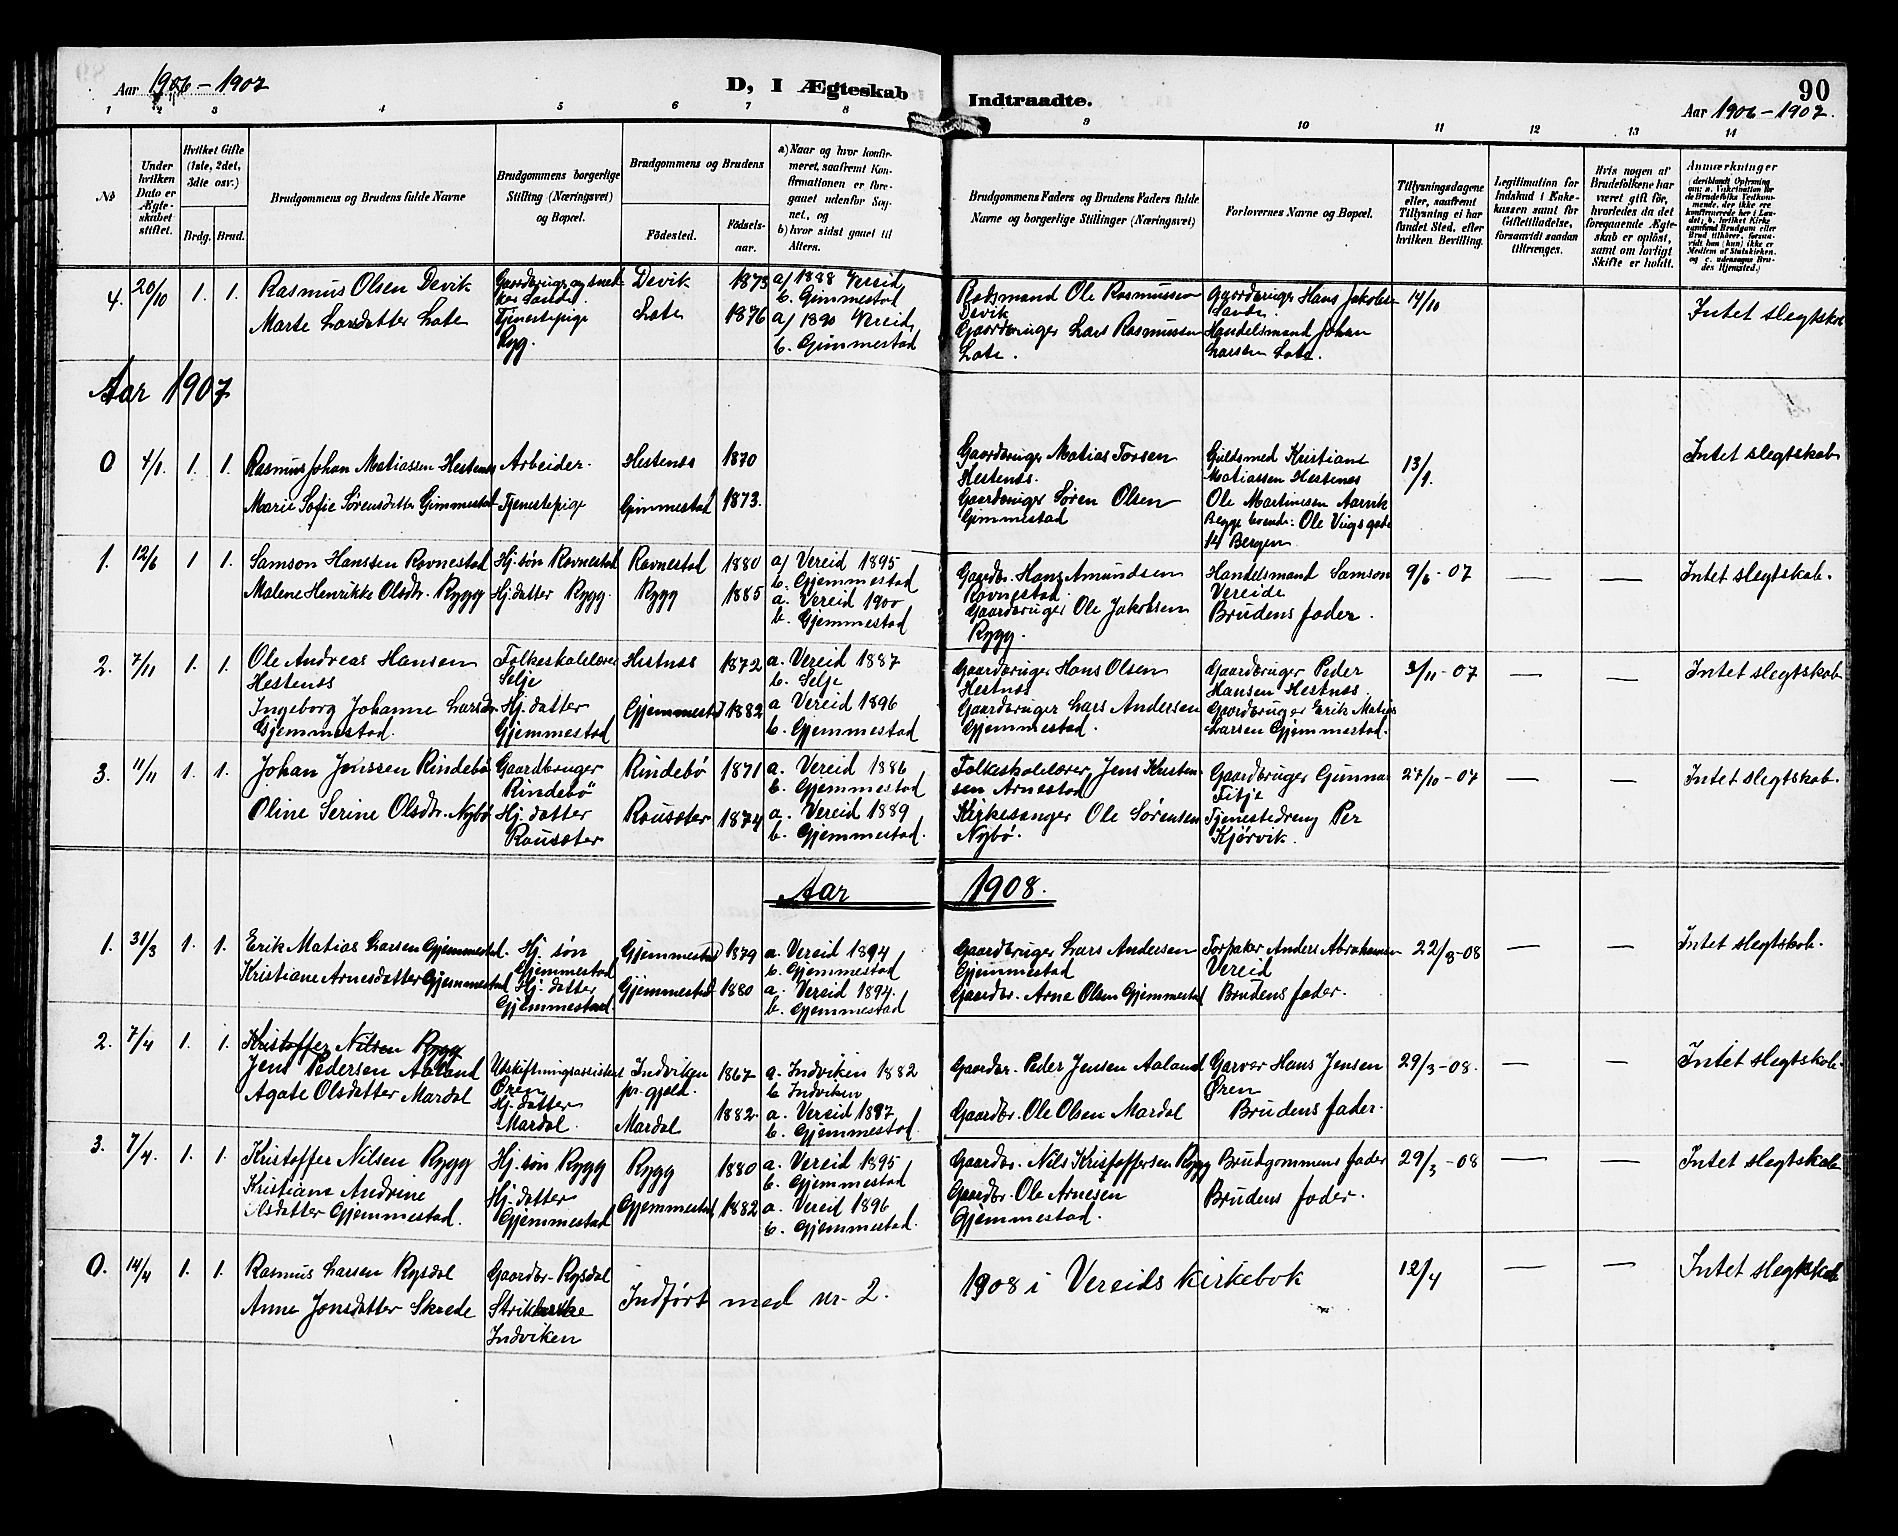 Aar 1906 - 1907
D, I Ægteskab Indtraadte.
90
Aar 1906 - 1907.
1 2 3 4 5 6 7 8 9 10 11 12 13 14
No
Under hvilken Dato er Ægteskabet stiftet.
Hvilket Gifte (1ste, 2det, 3die osv.)
Brdg. Brud.
Brudgommens og Brudens fulde Navne
Brudgommens borgerlige Stilling (Næringsvei) og Bopæl.
Brudgommens og Brudens
Fødested.
Fødselsaar.
a) Naar og hvor konfirmeret, saafremt Konfirmationen er foregaaet udenfor Sognet, og
b) hvor sidst gaaet til Alters.
Brudgommens Faders og Brudens Faders fulde Navne og borgerlige Stillinger (Næringsvei)
Forlovernes Navne og Bopæl.
Tillysningsdagene eller, saafremt Tillysning ei har fundet Sted, efter hvilken Bevilling.
Legitimation for Indskud i Enkekassen samt for Giftetilladelse, forsaavidt saadan tiltrænges.
Hvis nogen af Brudefolkene har været gift før, hvorledes da det foregaaende Ægteskab er opløst, samt om lovligt Skifte er holdt.
Anmærkninger
4. 20/10 1. 1. Rasmus Olsen Devik
Devik 1873 a/ 1888 Vereid
b. Gimmestad
Rodsmand Ole Rasmussen Devik
Gaardbruger Hans Jakobsen
14/10
Intet slegtskab
Marte Larsdatter Lote
Tjenestepige Ryg.
Lote 1876 a/ 1890 Vereid,
b. Gimmestad
Gaardbruger Lars Rasmussen Lote.
Handelsmand Johan Larsen Lote.
Aar 1907
0 4/1. 1. 1. Rasmus Johan Matiassen Hestenes
Arbeider. Hestenes 1870
Gaardbruger Matias Torsen Hestenes.
Guldsmed Kristian Matiassen Hestenes
13/1.
Intet slegtskab
Marie Sofie Sørensdatter Gimmestad
Tjenestepige Gimmestad 1873.
Gaardbruger Søren Olsen Gimmestad
Ole Martinesen
Begge boende: Ole Viigs gade 14 Bergen
1. 12/6 1 1. Samson Hanssen Ravnestad
Hj. søn Ravnestad Ravnestad 1880 a/ Vereid 1895
b. Gjemmestad
Gaardbr. Hans Amundsen Ravnestad.
Handelsmand Samson Vereide
9/6 - 07
Intet slegtskab.
Malene Henrikke Olsdtr. Rygg
Hj. datter Rygg. Rygg 1885 a. Vereid 1900
b. Gjemmestad
Gaardbruger Ole Jakobsen Rygg.
Brudens fader.
2. 7/11 1. 1. Ole Andreas Hansen Hestenes
Folkeskolelærer Selje
Hestnes 1872 a. Vereid 1887
b. Selje
Gaardbruger Hans Olsen Hestnes
Gaardbruger Peder Hansen Hestnes
3/11 - 07
Intet slegtskab
Ingeborg Johanne Larsdtr. Gjemmestad.
Hj. datter Gjemmestad
Gjemmestad 1882 a Vereid 1896
b. Gjemmestad
Gaardbruger Lars Andersen Gjemmestad.
Gaardbruger Erik Matias Larsen Gjemmestad.
3. 11/11 1. 1. Johan Jenssen Rindebø
Gaardbruger Rindebø
Rindebø 1871 a. Vereid 1886
b. Gjemmestad
Folkeskolelærer Jens Kristensen Arnestad
Gaardbruger Gunnar Fitje
27/10 - 07
Intet slegtskab.
Oline Serine Olsdtr. Nybø
Hj. datter
1874 a. Vereid 1889
b. Gjemmestad.
Kirkesanger Ole Sørensen Nybø.
Tjenestedreng Per Kjørvik.
Aar 1908.
1. 31/3 1. 1. Erik Matias Larsen Gjemmestad.
Hj. søn Gjemmestad
Gjemmestad 1879 a. Vereid 1894
b. Gjemmestad
Gaardbruger Lars Andersen Gjemmestad
Anders Abrahamsen Vereid
22/3-08
Intet slegtskab.
Kristiane Arnesdatter Gjemmestad
Hj. datter Gjemmestad
Gjemmestad 1880 a. Vereid 1894.
b. Gjemmestad
Gaardbr. Arne Olsen Gjemmestad
Brudens fader.
2. 7/4 1. 1. Kristoffer Nilsen Rygg
Jens Pedersen Aaland
Utskiftningsassistent Ören
Indviken pr. gjeld. 1867 a. Indviken 1882
b Indviken
Gaardbr. Peder Jensen Aaland
Garver Hans Jensen Øren
29/3-08.
Intet slegtskab.
Agate Olsdatter Mardal
Hj. datter Mardal.
Mardal 1882. a. Vereid 1897
b. Gjemmestad
Gaardbr. Ole Olsen Mardal
Brudens fader.
3. 7/4. 1. 1. Kristoffer Nilsen Rygg
Hj. søn Rygg Rygg 1880 a. Vereid 1895
b. Gjemmestad
Gaardbr. Nils Kristoffersen Rygg
Brudgommens fader
29/3 - 08
Intet slegtskab
Kristiane Andrine Olsdatter Gjemmestad.
Hj. datter Gjemmestad
Gjemmestad 1882 a. Vereid 1896
b. Gjemmestad.
Gaardbr. Ole Arnesen Gjemmestad.
Brudens fader.
0. 14/4 1. 1. Rasmus Larsen Rysdal
Gaardbr. Rysdal
Indført med nr. 2. 1908 i Vereids kirkebok
12/4
Intet slegtskab
Anne Jonsdatter Skrede
Indviken